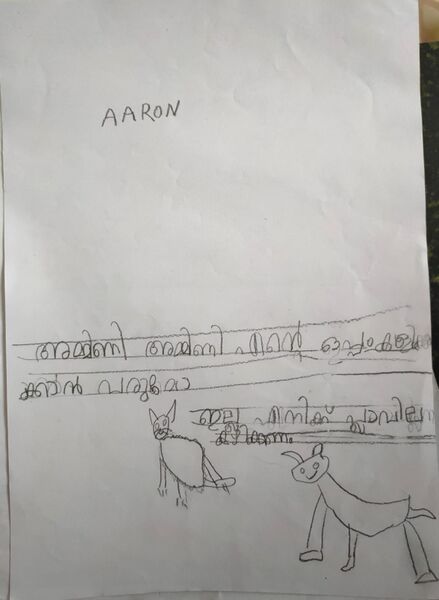 AARON
അമ്മിണി അമ്മിണി എന്റെ ഒപ്പം കളിക്
കാൻ വരുമോ
ഇല്ല എനിക്ക് പ്ലാവില
കഴിക്കണം.